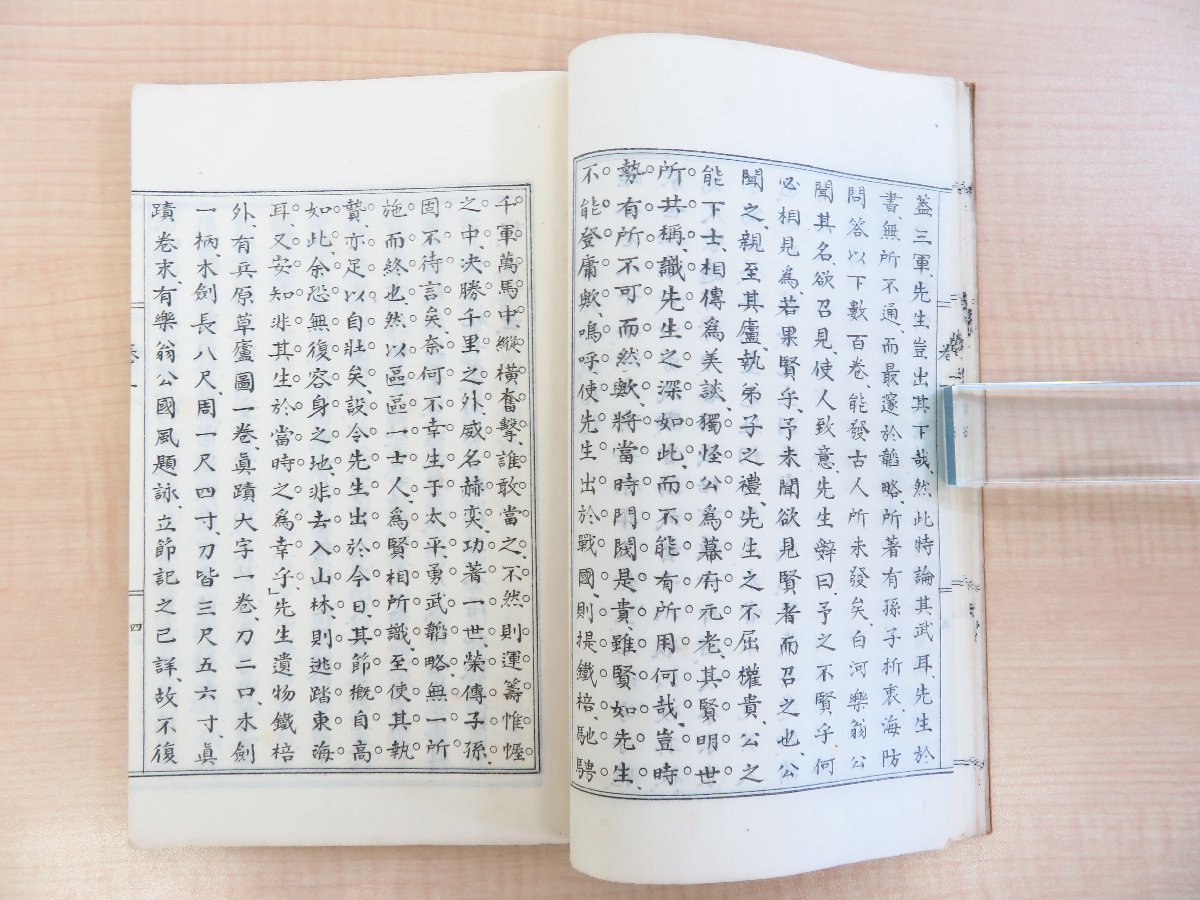 蓋三軍、先生豈出其下哉、然此時論其武耳、先生於
書、無所不通、而最邃於韜略、所著有孫子折衷海防
問答以下數百卷、能發古人所未發矣、白河樂翁公
聞其名、欲召見、使人致意、先生辭曰、予之不賢乎、何
必相見為、若果賢乎、予未聞欲見賢者而召之也、公
聞之、親至其廬、執弟子之禮、先生之不屈權貴、公之
能下士、相傳為美談、獨怪公為幕府元老、其賢明世
所共稱、識先生之深如此、而不能有所用何哉、豈時
勢有所不可而然歟、將當時門閥是貴、雖賢如先生、
不能登庸歟、嗚呼使先生出於戰國、則提鐵棓、馳騁
千軍萬馬中、縱橫奮擊、誰敢當之、不然則運籌帷幄
之中、決勝千里之外、威名赫奕、功著一世、榮傳子孫、
固不待言矣、奈何不幸生于太平、勇武韜略、無一所
施而終也、然以區區一士人、為賢相所識、至使其執
贄、亦足以自壯矣、設令先生出於今日、其節概自高
如此、余恐無復容身之地、非去入山林、則逃踏東海
耳、又安知非其生於當時之為幸乎」先生遺物鐵棓
外、有兵原草廬圖一卷、眞蹟大字一卷、刀二口、木劍
一柄、木劍長八尺、周一尺四寸、刀皆三尺五六寸、眞
蹟卷末、有樂翁公國風題詠、立節記之已詳、故不復
四